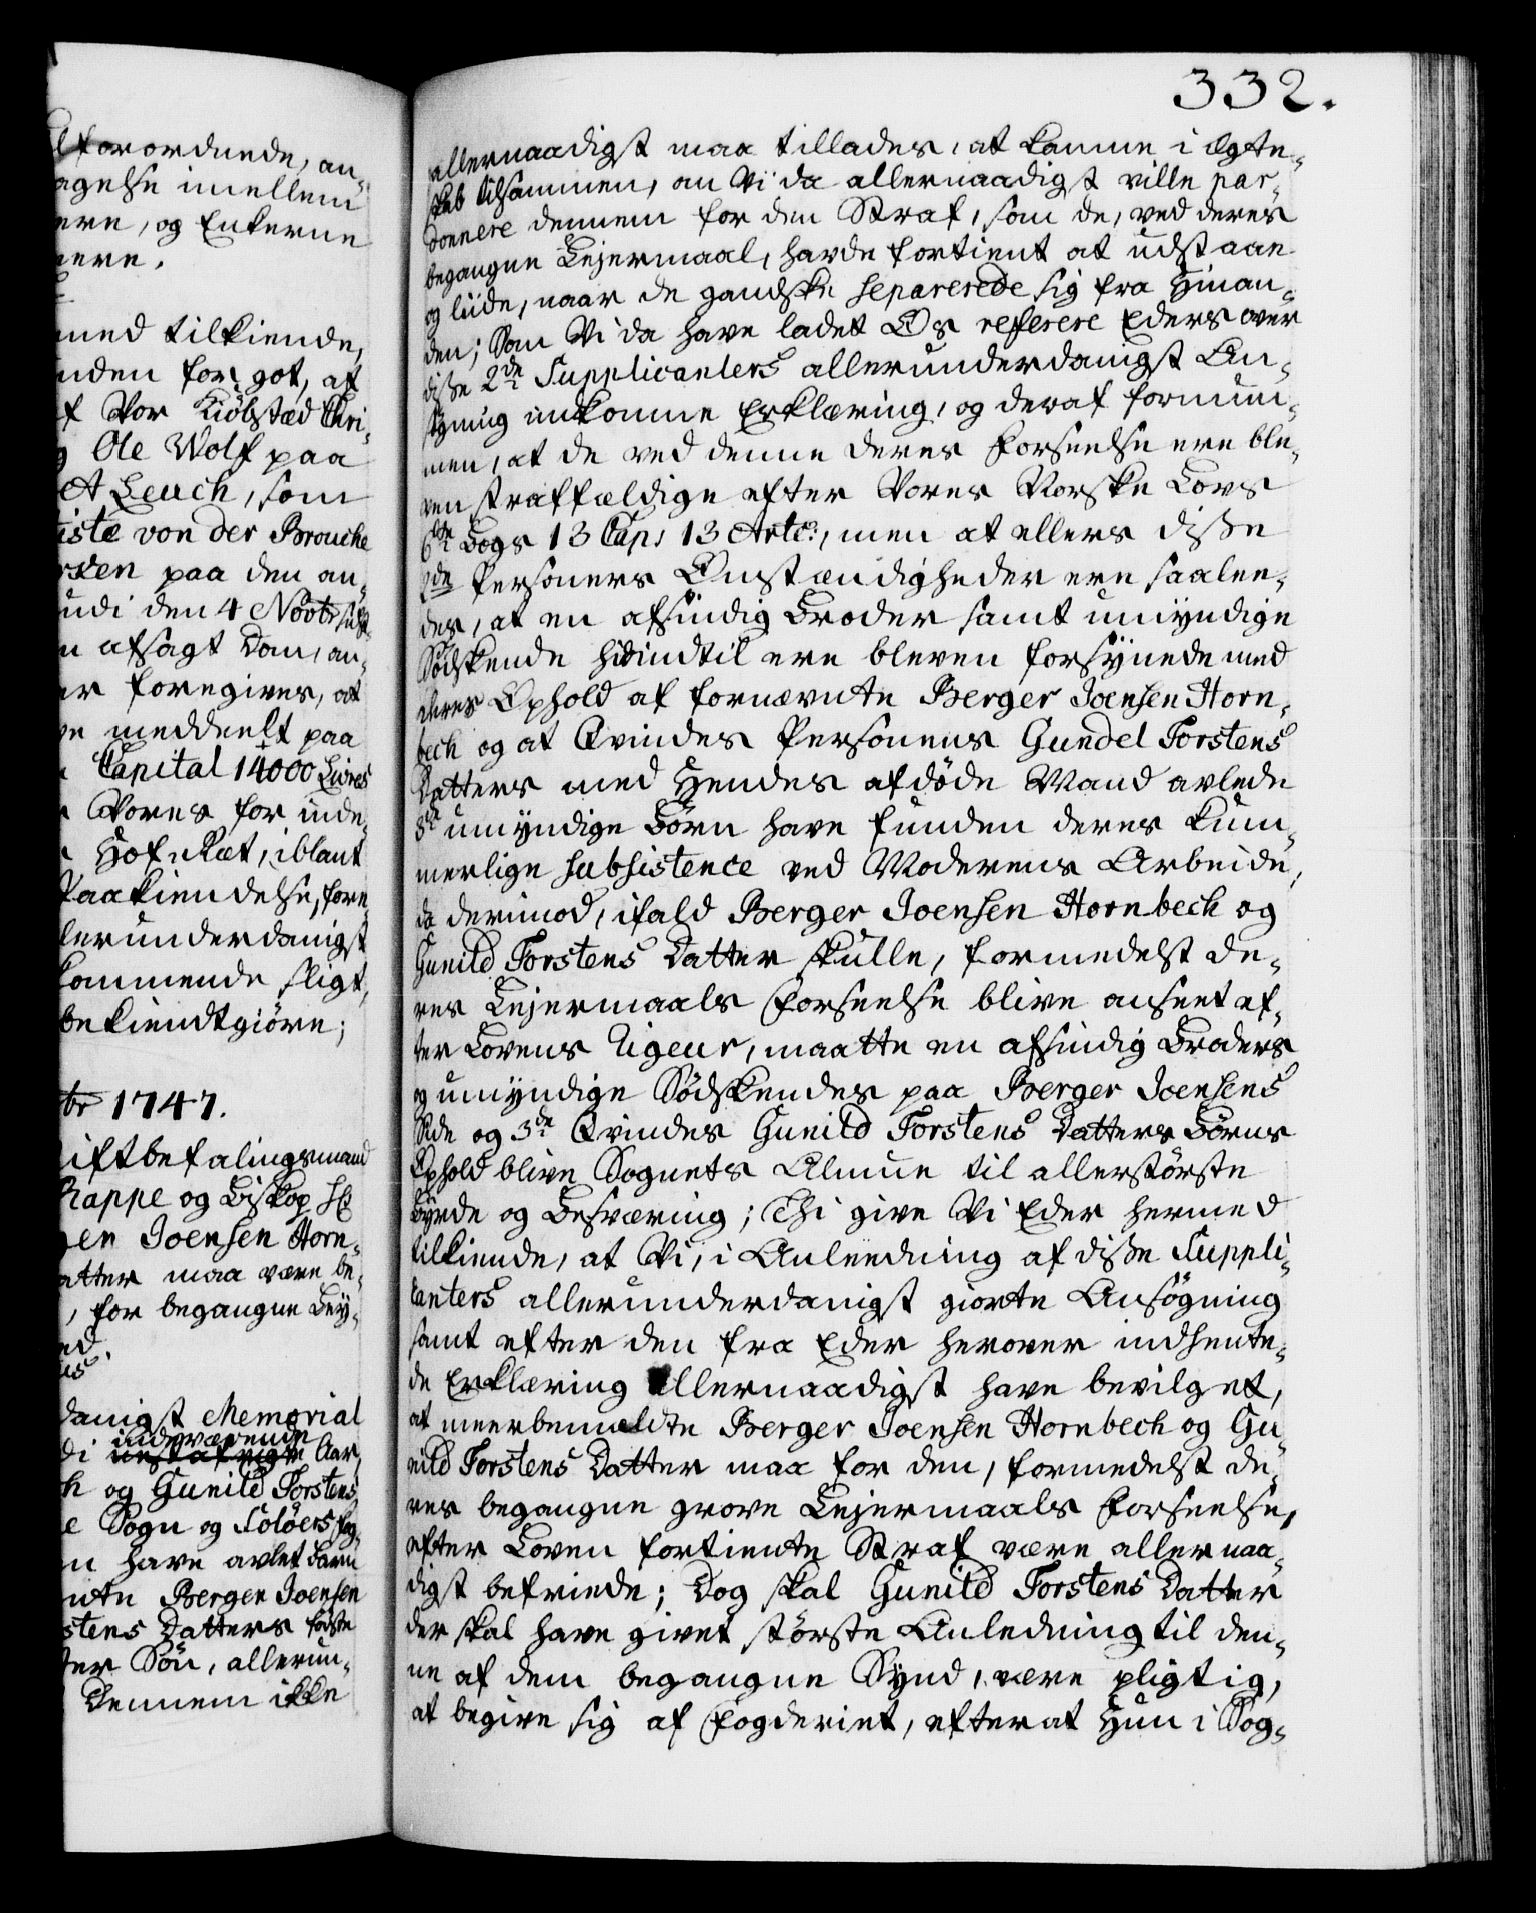 forordnede, an-
agelse imellem
ere, og Enkerne
nere.
med tilkiende,
inden for got, at
af Vor Kiöbstæd Chri-
g Ole Wolf paa
A Leuch, som
tiste von der Brouche
rsen paa den an-
udi den 4 Novbr
n afsagt Dom, an-
er foregives, at
ve meddeelt paa
Capital 14000 Livres
Vores for inde-
Hof-Ræt, iblant
Paakiendelse, fore
lerunderdanigst
kommende sligt,
bekiendtgiöre;
br 1747.
iftbefalingsmand
Rappe og Biskop
ger Joensen Horn-
atter maa være be-
, for begangne Ley-
ed.
danigst Memorial
indeværende
di næst afvigte Aar
h og Gunild Torstens
e Sogn og Solöers Fog-
n have avlet Barn
nte Berger Joensen
stens Datters första
ter Sön, allerun-
Dennem ikke
332.
allernaadigst maa tillades, at komme i Ægte-
skab tilsammen, om Vi da allernaadigst ville par-
donnere dennem for den Straf, som de, ved deres
begangne Lejermaal, havde fortient at udstaae
og liide, naar de gandske separerede sig fra Hinan-
den; Som Vi da have ladet Os referere Eders over
disse 2de Supplicanters allerunderdanigst An-
sögning inkomne Erklæring, og deraf fornum-
men, at de ved denne deres Forseelse ere ble-
ven straffældige efter Vores Norske Lovs
6te Bogs 13 Cap: 13 Artc:, men at ellers disse
2de Personers Omstændigheder ere saalee-
des, at en afsindig Broder samt umyndige
Södskende hidindtil ere bleven forsÿnede med
deres Ophold af fornævnte Berger Joensen Horn-
bech og at Qvindes Personens Gundel Torstens
Datters med Hendes afdöde Mand avlede
3de umyndige Börn have funden deres kum-
merlige subsistence ved Moderens Arbeide,
da derimod, ifald Berger Joensen Hornbech og
Gunild Torstens Datter skulle, formedelst de-
res Lejermaals Forseelse blive anseet ef-
ter Lovens Rigeur, maatte en afsindig Broders
og umyndige Södskendes paa Berger Joensens
Side og 3de Qvindes Gunild Torstens Datters Börns
Ophold blive Sognets Almue til allerstörste
Byrde og Besværing; Thi give Vi Eder hermed
tilkiende, at Vi, i Anleedning af disse Suppli-
canters allerunderdanigst giorte Ansögning
samt efter den fra Eder herover indhente-
de Erklæring Allernaadigst have bevilget,
at meerbemeldte Berger Joensen Hornbech og Gu-
nild Torstens Datter maa for den, formedelst de-
res begangne grove Lejermaals Forseelse,
efter Loven fortiente Straf være allernaa-
digst befriede; Dog skal Gunild Torstens Datter
der skal have givet störste Anledning til den-
ne af dem begangne Synd, være pligtig,
at begive sig af Fogderiet, efterat Hun i Sog-